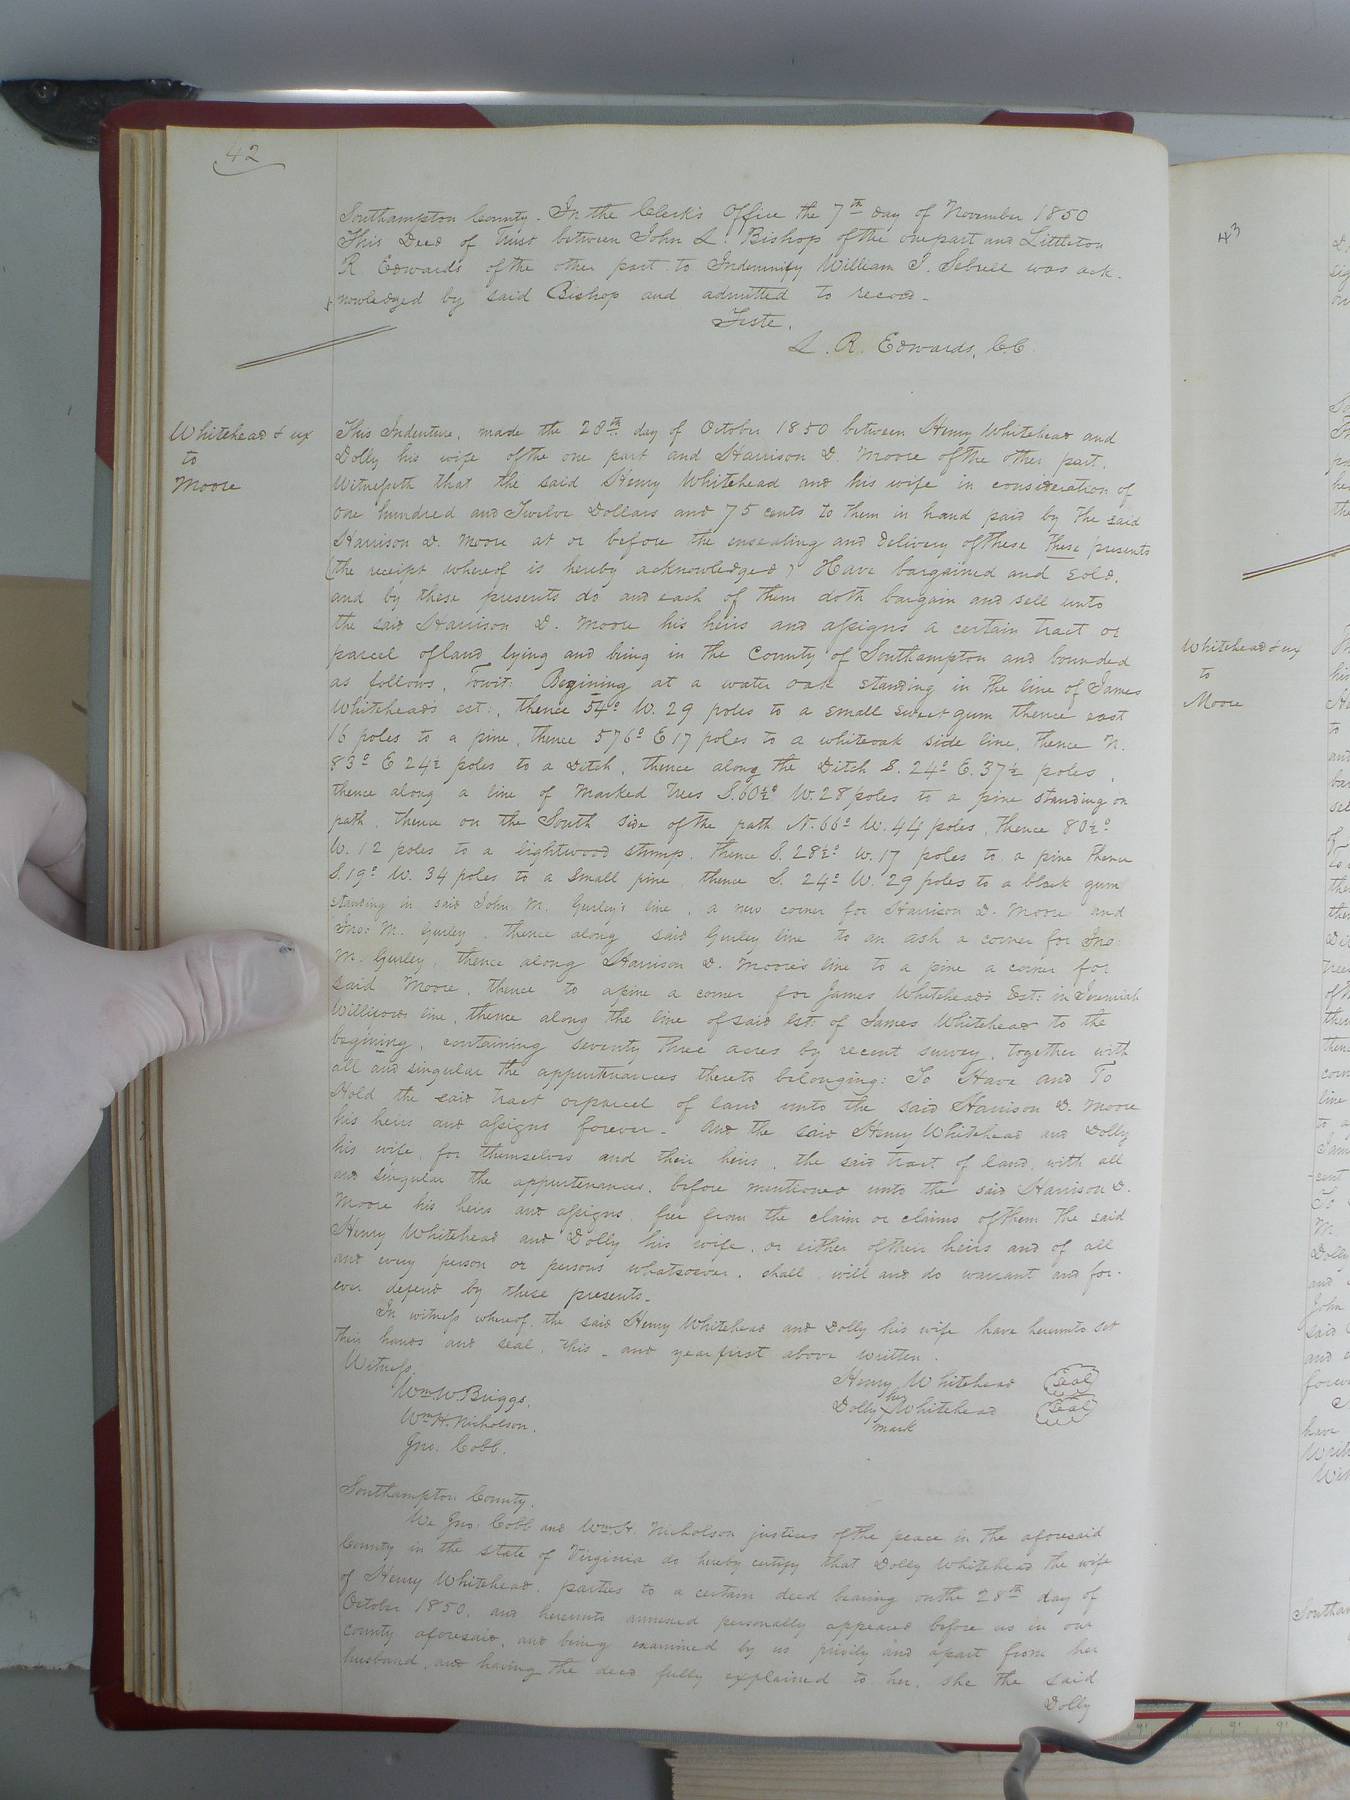 42
Southampton County. In the Clerk's Office the 7th day of November 1850
This Deed of Trust between John L. Bishop of the one part and Littleton
R Edwards of the other part to Indemnify William J. Sebrell was ack-
nowledged by said Bishop and admitted to record.
Teste,
L. R. Edwards, C.C.
Whitehead & ux
to
Moore
This Indenture, made the 28th day of October 1850 between Henry Whitehead and
Dolly his wife of the one part and Harrison D. Moore of the other part,
Witnesseth that the said Henry Whitehead and his wife in consideration of
one hundred and Twelve Dollars and 75 cents to them in hand paid by the said
Harrison D. Moore at or before the ensealing and delivery of these these presents
(the receipt whereof is hereby acknowledged) Have bargained and sold,
and by these presents do and each of them doth bargain and sell unto
the said Harrison D. Moore his heirs and assigns a certain tract or
parcel of land lying and being in the County of Southampton and bounded
as follows, Towit: Begining at a water oak standing in the line of James
Whitehead's est:, thence 54° W. 29 poles to a small sweet gum thence east
16 poles to a pine, thence 576° E 17 poles to a whiteoak side line, thence N.
83° E 24½ poles to a Ditch, thence along the Ditch S. 24° E. 37½ poles,
thence along a line of marked trees S. 60½° W. 28 poles to a pine standing on
path, thence on the South side of the path N. 66° W. 44 poles, thence 80½°
W. 12 poles to a lightwood stump, thence S. 28½° W. 17 poles to a pine thence
S. 19° W. 34 poles to a small pine, thence S. 24° W. 29 poles to a black gum
standing in said John M. Gurley's line, a new corner for Harrison D. Moore and
Jno: M. Gurley, thence along said Gurley line to an ash a corner for Jno
M. Gurley, thence along Harrison D. Moore's line to a pine a corner for
said Moore, thence to a pine a corner for James Whitehead's Est: in Jeremiah
line, thence along the line of said Est. of James Whitehead to the
begining, containing seventy three acres by recent survey, together with
all and singular the appurtenances thereto belonging: To Have and To
Hold the said tract or parcel of land unto the said Harrison D. Moore
his heirs and assigns forever. And the said Henry Whitehead and Dolly
his wife, for themselves and their heirs, the said tract of land, with all
and singular the appurtenances, before mentioned unto the said Harrison D.
Moore his heirs and assigns, free from the claim or claims of them the said
Henry Whitehead and Dolly his wife, or either of their heirs and of all
and every person or persons whatsoever, shall, will and do warrant and for-
ever defend by these presents.
In witness whereof, the said Henry Whitehead and Dolly his wife have hereunto set
their hands and seal, this - and year first above written.
Witness,
Wm W. Briggs,
Wm H. Nicholson.
Jno. Cobb.
Henry Whitehead Seal
her
Dolly X Whitehead Seal
mark
Southampton County.
We Jno. Cobb and Wm H. Nicholson justices of the peace in the aforesaid
County in the state of Virginia do hereby certify that Dolly Whitehead the wife
of Henry Whitehead, parties to a certain deed bearing on the 28th day of
October 1850, and hereunto annexed personally appeared before us in our
county aforesaid, and being examined by us privily and apart from her
husband, and having the deed fully explained to her, she the said
Dolly
43
Whitehead & ux
to
Moore